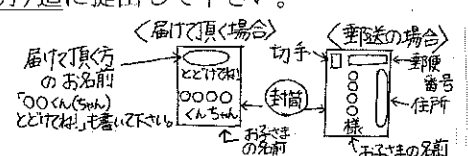 迄に提出して下さい。
〈届けて頂く場合〉
届けて頂く方
のお名前
「○○くん(ちゃん)
とどけてね!」も書いて下さい。
とどけてね!
○○○○
くん ちゃん
お子さま
の名前
封筒
〈郵送の場合〉
切手
郵便
番号
住所
○○○○様
お子さまの名前